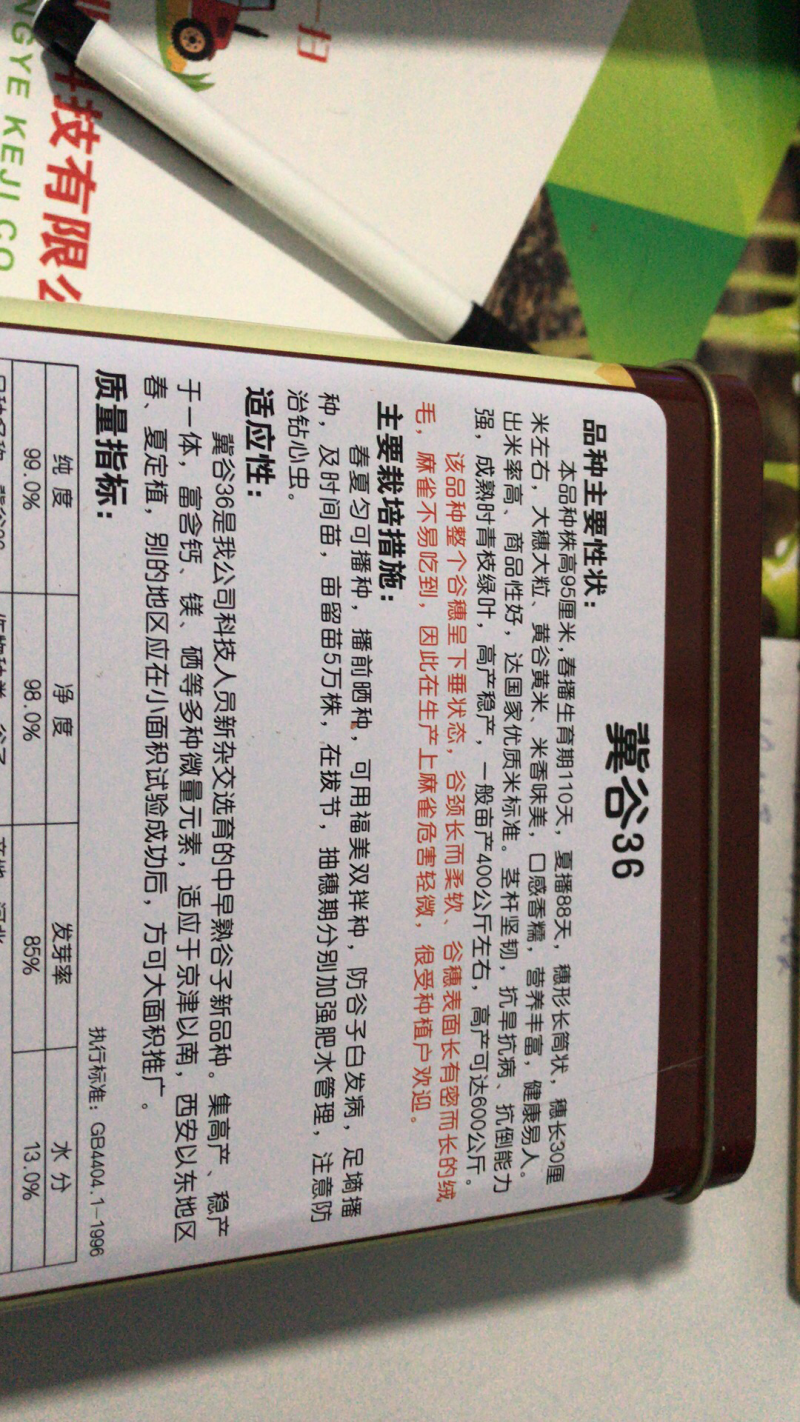 冀谷36
品种主要性状：
本品种株高95厘米，春播生育期110天，夏播88天，穗形长筒状，穗长30厘
米左右，大穗大粒、黄谷黄米、米香味美，口感香糯，营养丰富，健康易人。
出米率高、商品性好，达国家优质米标准。茎杆坚韧，抗旱抗病、抗倒能力
强，成熟时青枝绿叶，高产稳产，一般亩产400公斤左右，高产可达600公斤。
该品种整个谷穗呈下垂状态，谷颈长而柔软、谷穗表面长有密而长的绒
毛，麻雀不易吃到，因此在生产上麻雀危害轻微，很受种植户欢迎。
主要栽培措施：
春夏匀可播种，播前晒种，可用福美双拌种，防谷子白发病，足墒播
种，及时间苗，亩留苗5万株，在拔节，抽穗期分别加强肥水管理，注意防
治钻心虫。
适应性：
冀谷36是我公司科技人员新杂交选育的中早熟谷子新品种。集高产、稳产
于一体，富含钙、镁、硒等多种微量元素，适应于京津以南，西安以东地区
春、夏定植，别的地区应在小面积试验成功后，方可大面积推广。
质量指标：
执行标准：GB4404.1-1996
纯度 净度 发芽率 水分
99.0% 98.0% 85% 13.0%
一扫
科技有限公
NGYE KEJI CO